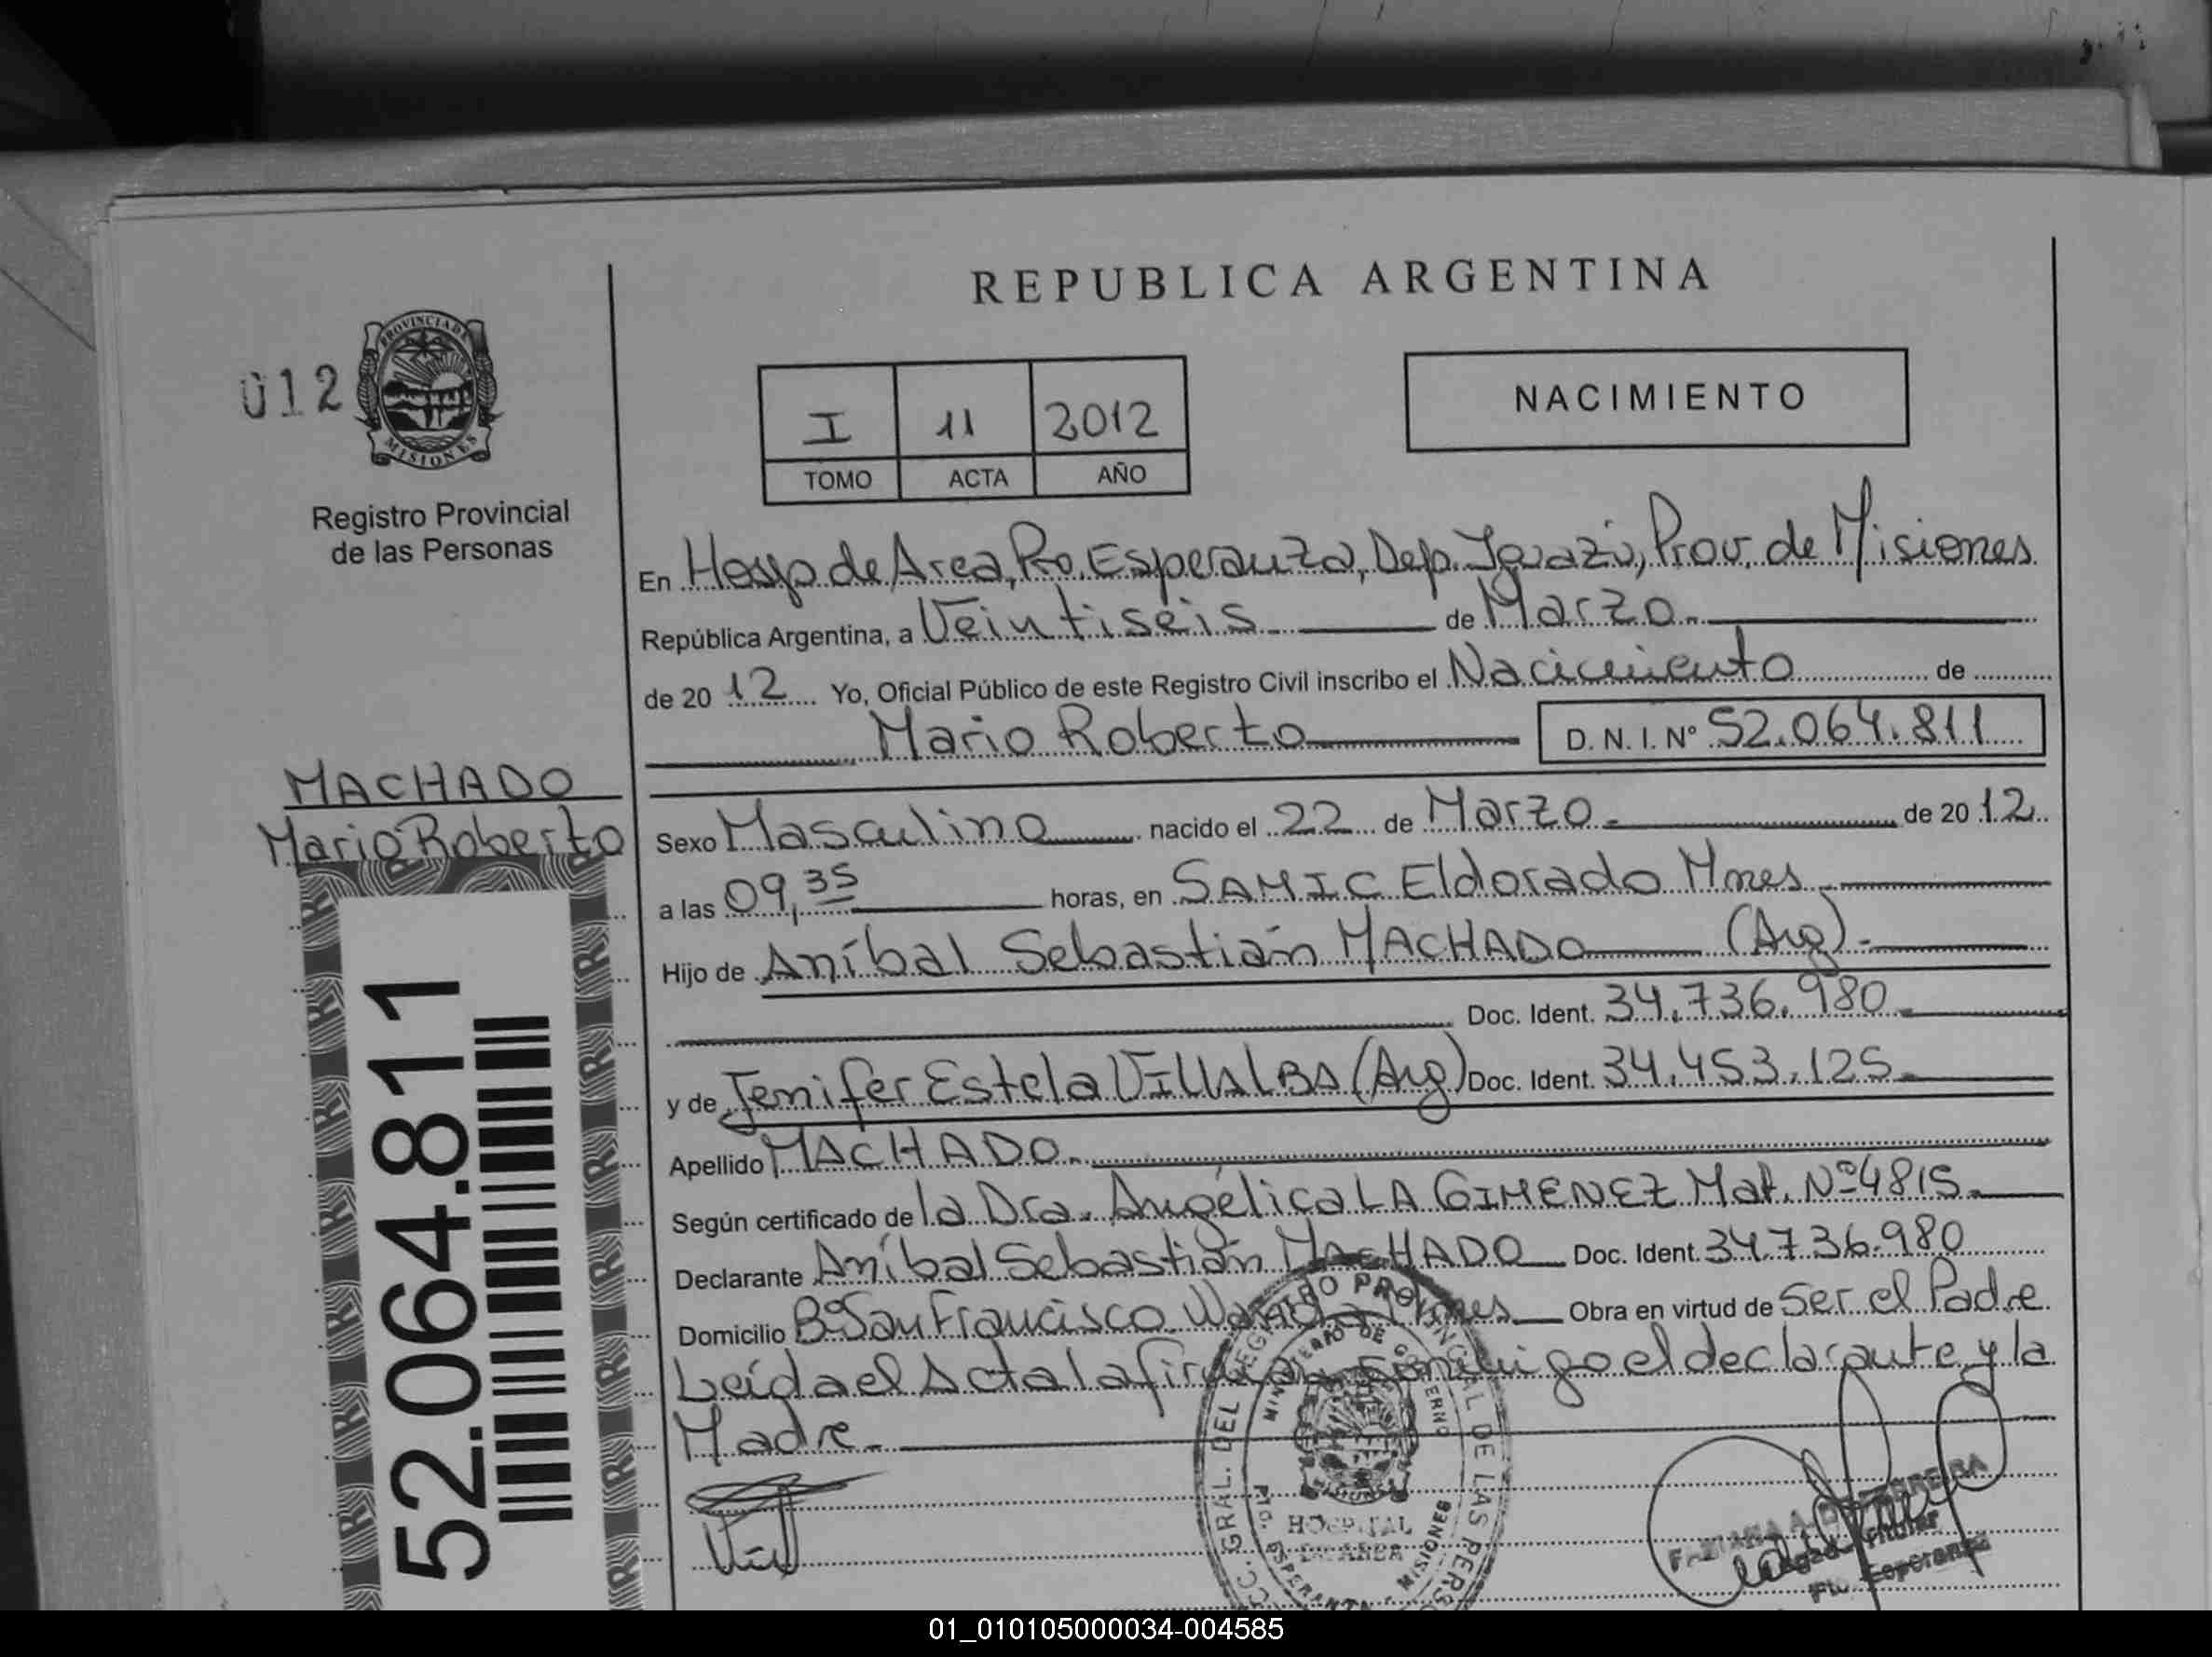 REPUBLICA ARGENTINA
012
PROVINCIA DE
MISIONES
Registro Provincial
de las Personas
I 11 2012
TOMO ACTA AÑO
NACIMIENTO
En Hosp de Area, Pto. Esperanza, Dep. Iguazú, Prov. de Misiones
República Argentina, a Veintiseis de Marzo
de 20 12 Yo, Oficial Público de este Registro Civil inscribo el Nacimiento de
Mario Roberto D. N. I. Nº 52.064.811
MACHADO
Mario Roberto
Sexo Masculino nacido el 22 de Marzo de 20 12
a las 09,35 horas, en SAMIC Eldorado Mnes
Hijo de Aníbal Sebastián MACHADO (Arg)
Doc. Ident. 34.736.980
y de Jenifer Estela VILLALBA (Arg) Doc. Ident. 34.453.125
Apellido MACHADO
Según certificado de la Dra. Angélica LA GIMENEZ Mat. Nº 4815
Declarante Aníbal Sebastián MACHADO Doc. Ident. 34.736.980
Domicilio Bº San Francisco Wanda Mnes Obra en virtud de Ser el Padre
Leída el Acta la firman conmigo el declarante y la
Madre
52.064.811
GRAL. DEL REGISTRO PROVINCIAL DE LAS PERS
MINISTERIO DE GOBIERNO
HOSPITAL
DE AREA
PTO. ESPERANZA - MISIONES
Pto. Esperanza
01_010105000034-004585